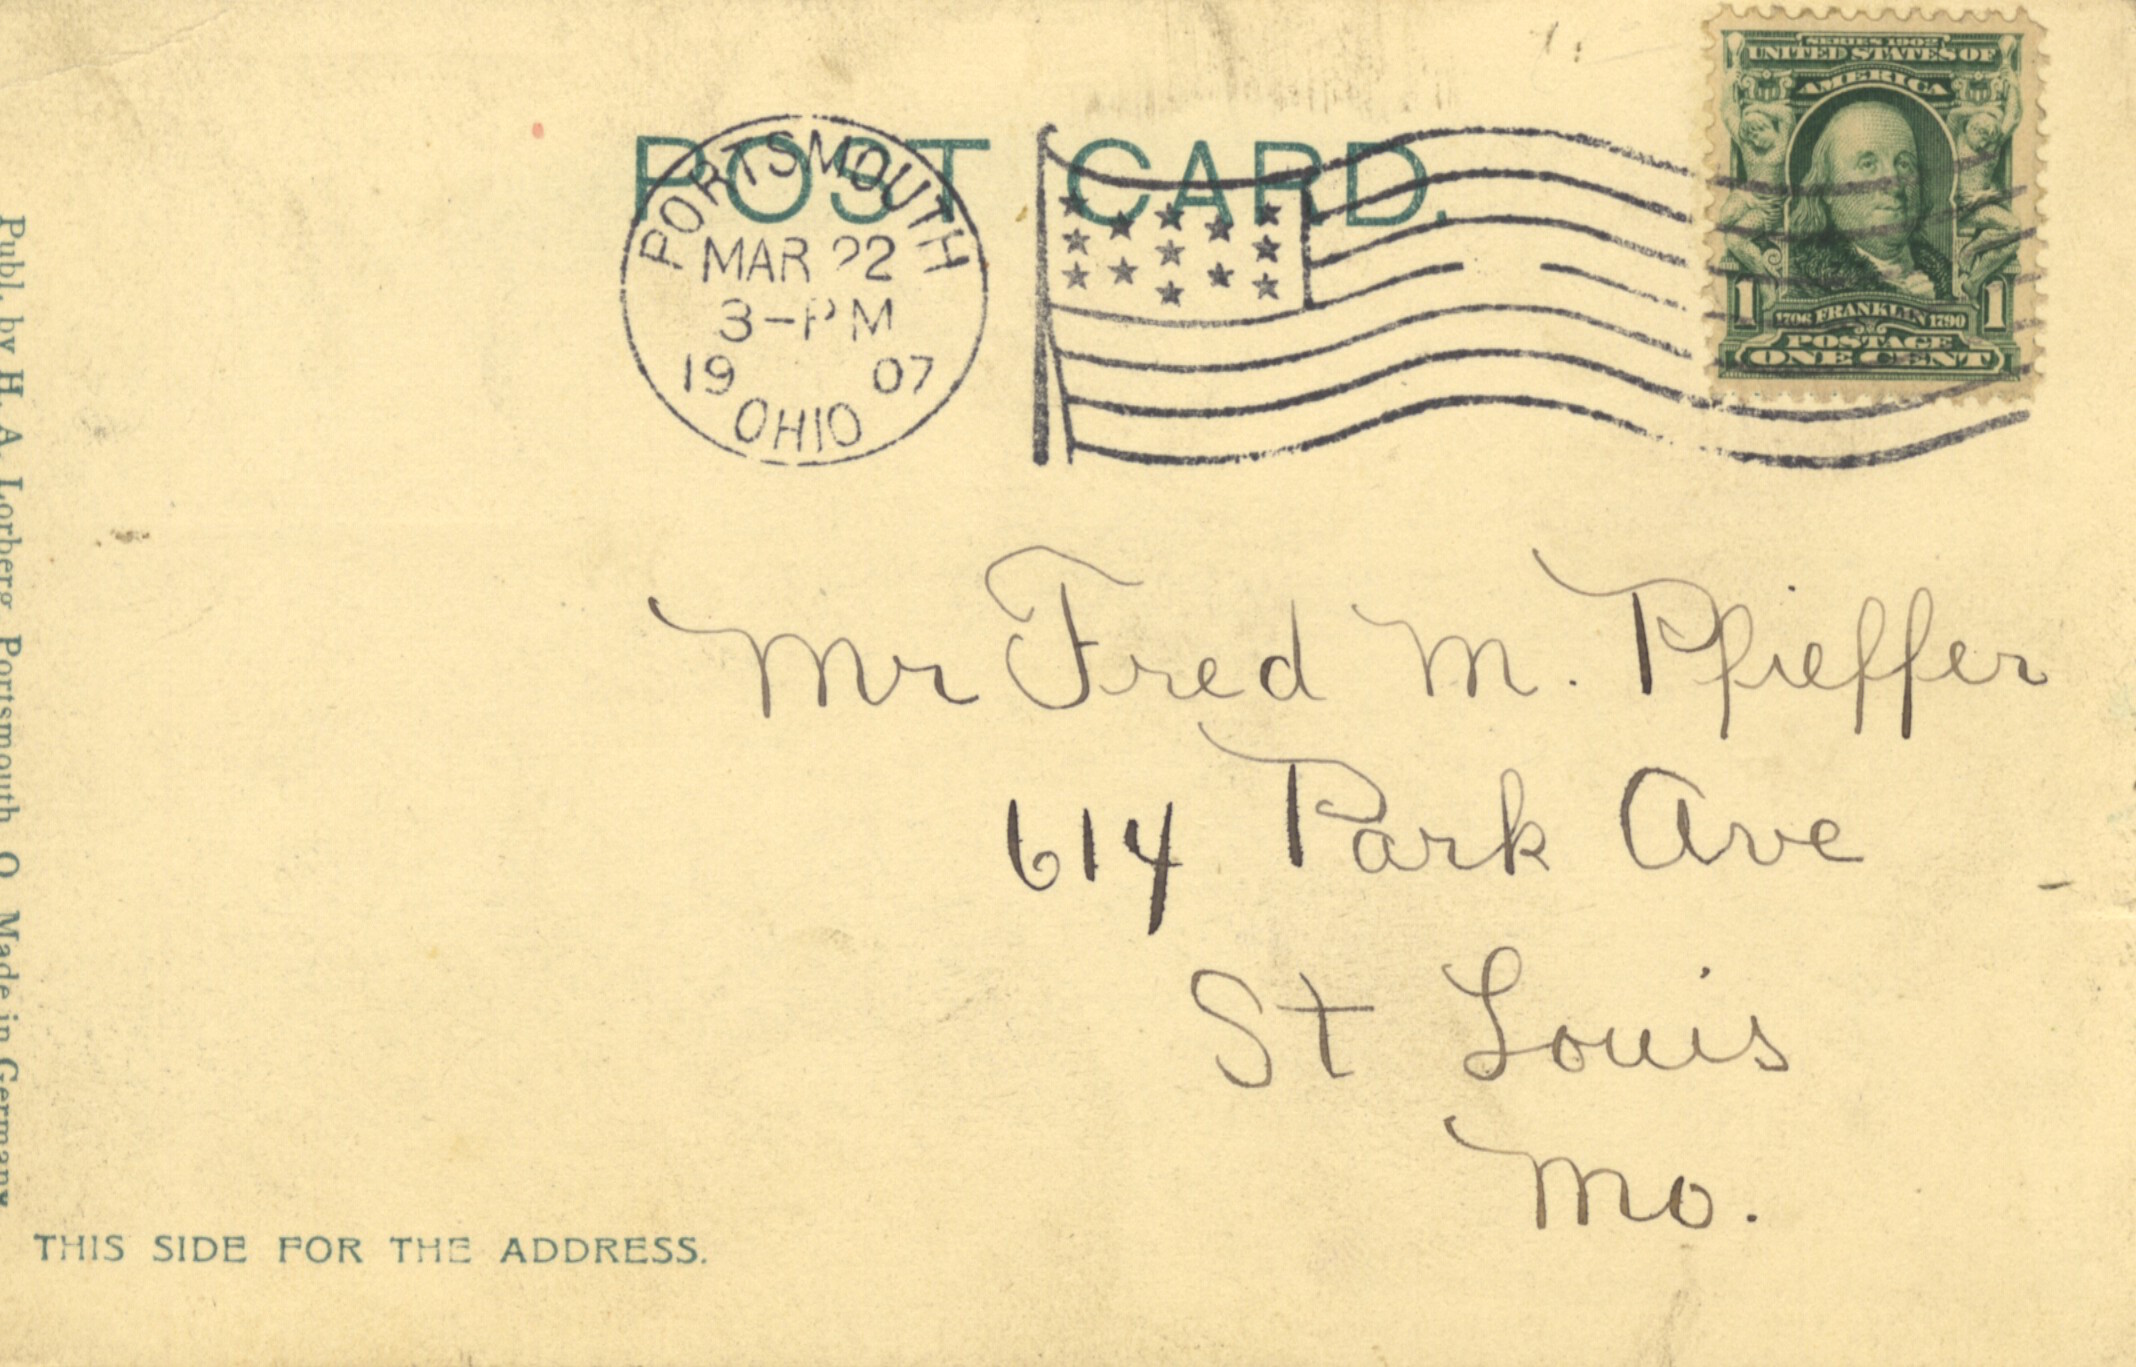 POST CARD.
PORTSMOUTH
MAR 22
3-PM
19 07
OHIO
SERIES 1902
UNITED STATES OF
AMERICA
1 1
1706 FRANKLIN 1790
POSTAGE
ONE CENT
Mr Fred M. Pfieffer
614 Park Ave
St Louis
Mo.
Publ. by H. A. Lorberg Portsmouth O Made in Germany
THIS SIDE FOR THE ADDRESS.